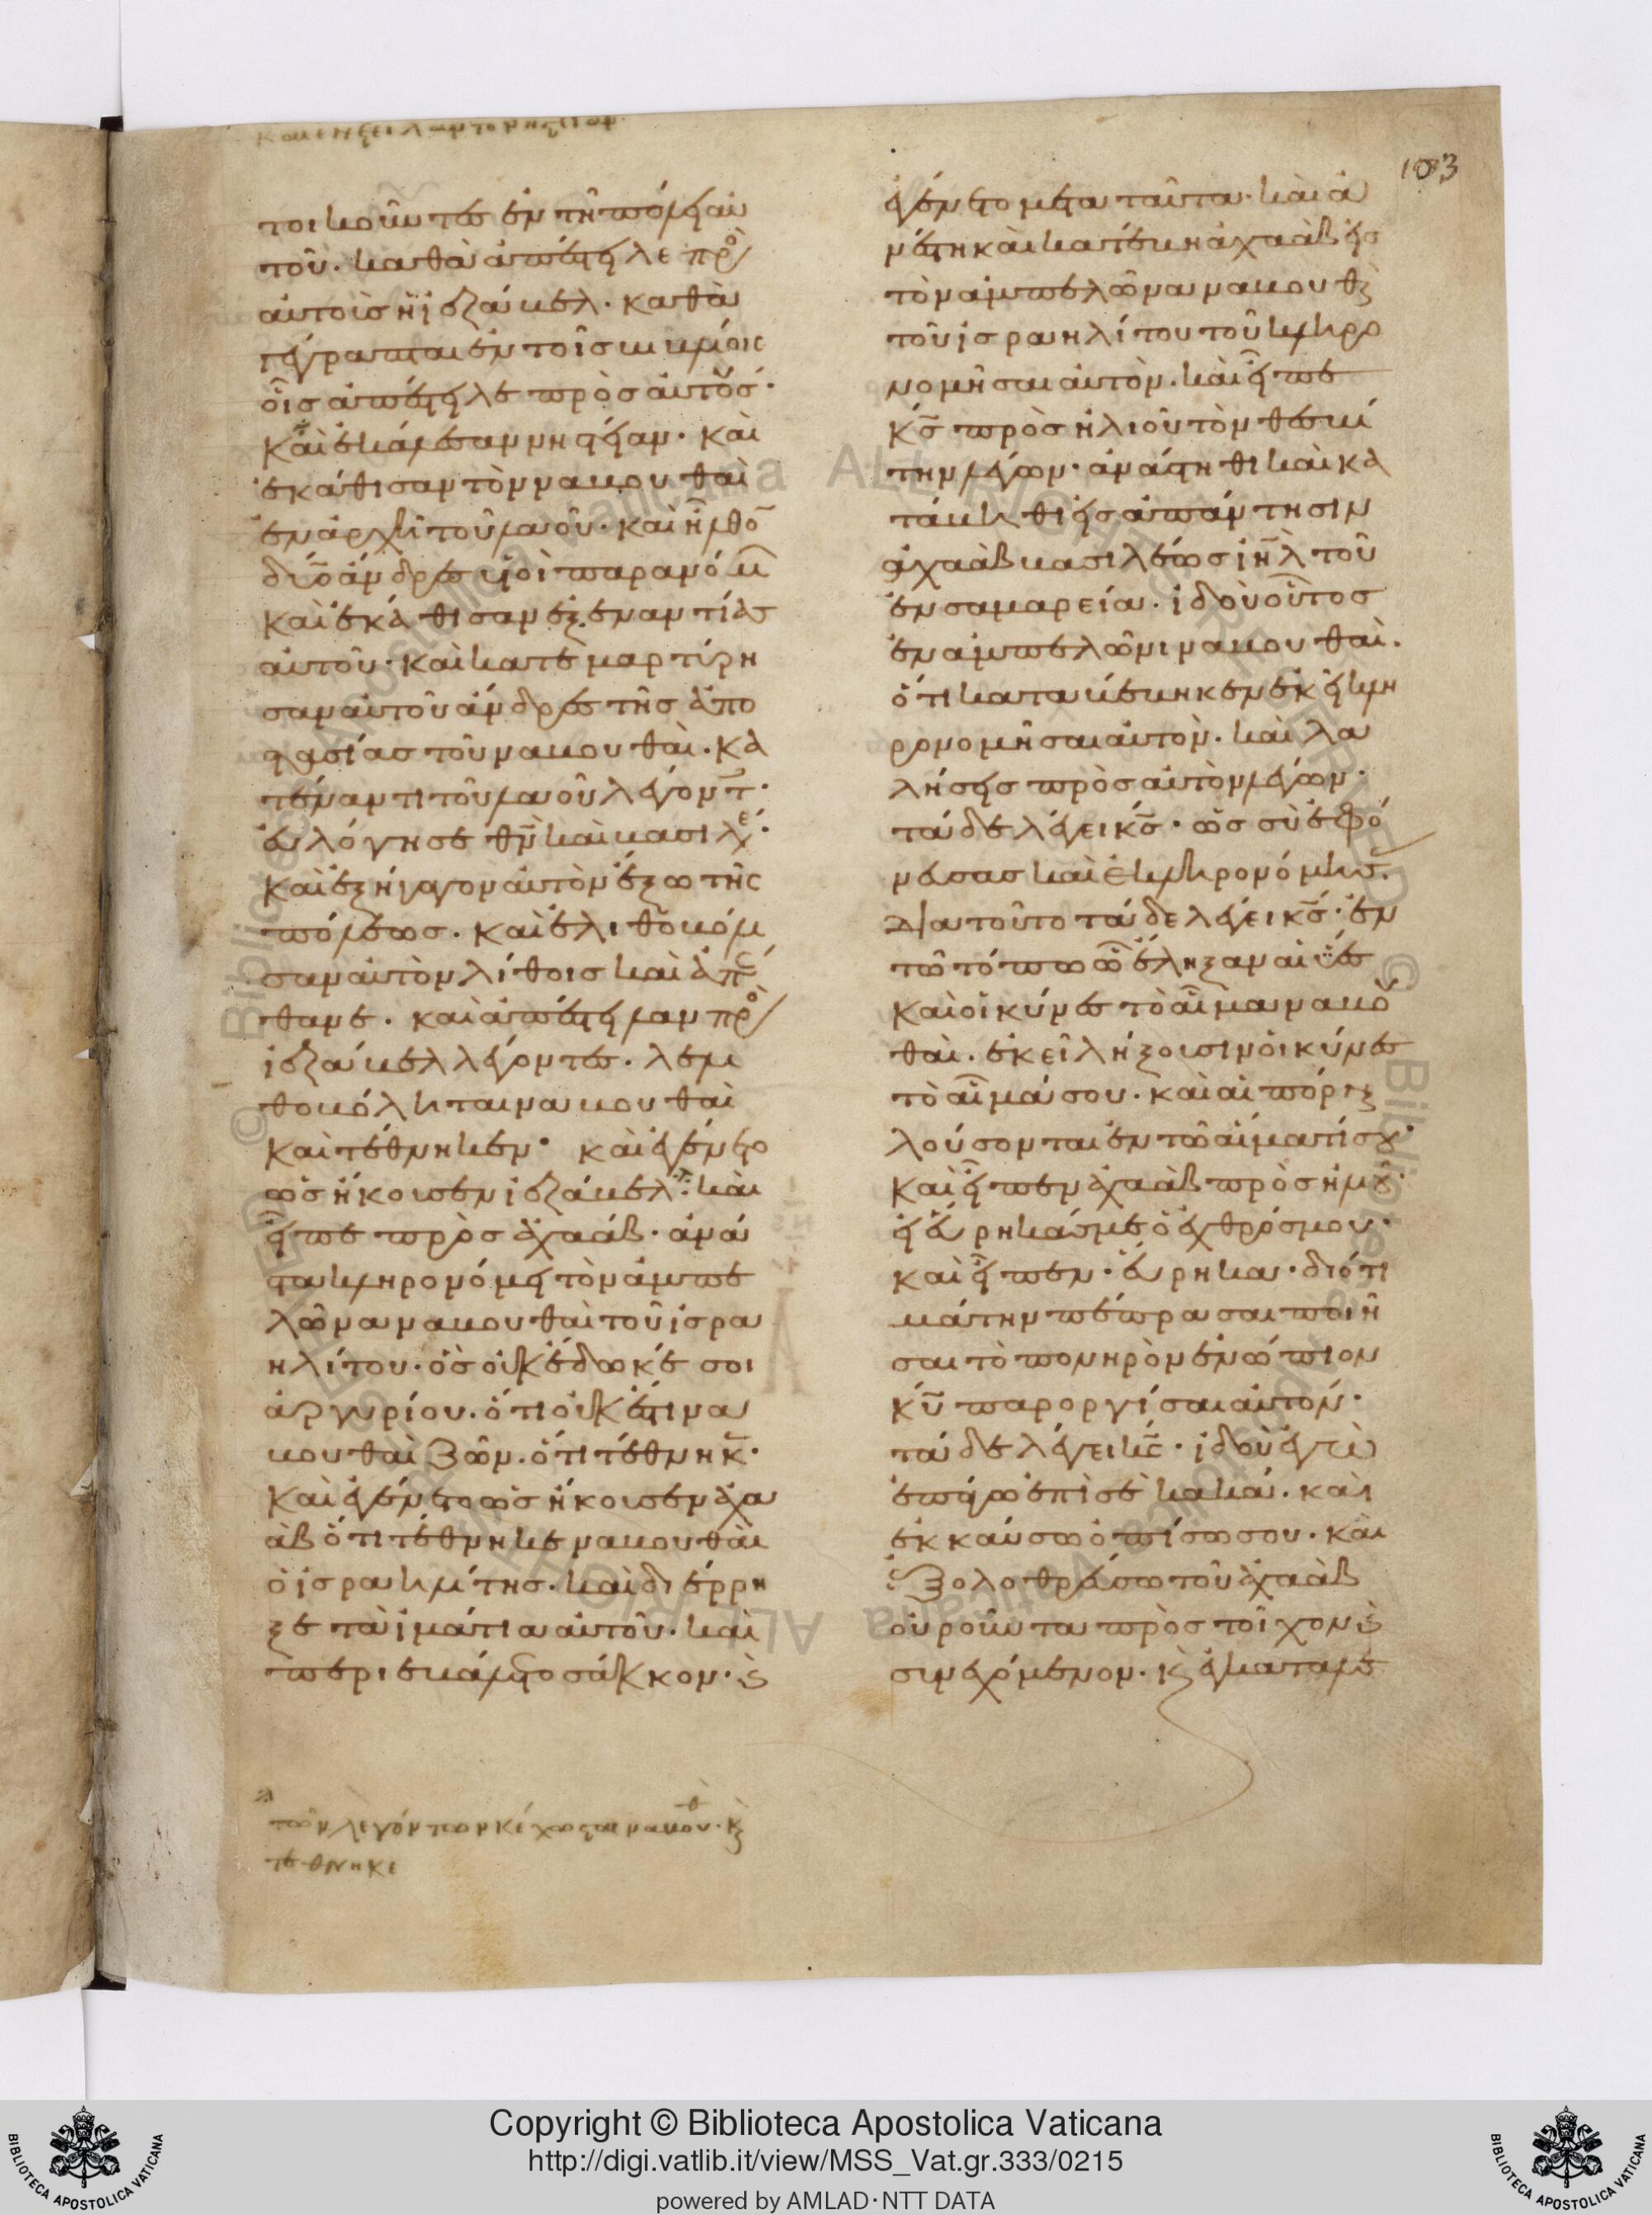 103
τοικοῦντες ἐν τῇ πόλει αὐ
τοῦ. καθὰ ἀπέστειλε πρὸ
αὐτοὺς ἡ ἰεζάβελ. καθὰ
γέγραπται ἐν τοῖς βιβλίοις
οἷς ἀπέστειλε πρὸς αὐτούς.
Καὶ ἐκάλεσαν νηστείαν. καὶ
ἐκάθισαν τὸν ναβουθαὶ
ἐν ἀρχῇ τοῦ λαοῦ. καὶ ἦλθο
δύο ἄνδρες υἱοὶ παρανόμ
καὶ ἐκάθισαν ἐξ ἐναντίας
αὐτοῦ. καὶ κατεμαρτύρη
σαν αὐτοῦ ἄνδρες τῆς ἀπο
στασίας τοῦ ναβουθαί. κα
τέναντι τοῦ λαοῦ λέγοντ.
εὐλόγησε θν καὶ βασιλέ.
Καὶ ἐξήγαγον αὐτὸν ἔξω τῆς
πόλεως. καὶ ἐλιθοβόλη
σαν αὐτὸν λίθοις καὶ ἀπέ
θανε. καὶ ἀπέστειλαν πρὸ
ἰεζάβελ λέγοντες. λελι
θοβόληται ναβουθαὶ
καὶ τέθνηκεν. καὶ ἐγένετο
ὡς ἤκουσεν ἰεζάβελ. καὶ
εἶπε πρὸς ἀχαάβ. ἀνά
στα κληρονόμει τὸν ἀμπε
λῶνα ναβουθαὶ τοῦ ἰσρα
ηλίτου. ὃς οὐκ ἔδωκέ σοι
ἀργυρίου. ὅτι οὐκ ἔστι να
βουθαὶ ζῶν. ὅτι τέθνηκ.
Καὶ ἐγένετο ὡς ἤκουσεν ἀχα
ὰβ ὅτι τέθνηκε ναβουθαὶ
ὁ ἰσραηλίτης. καὶ διέρρη
ξε τὰ ἱμάτια αὐτοῦ. καὶ
περιεβάλετο σάκκον. κ
τῶν λεγόντων κέχωσται ναβουθ. κ
τέθνηκε
ἐγένετο μετὰ ταῦτα. καὶ ἀ
νέστη καὶ κατέβη ἀχαὰβ εἰς
τὸν ἀμπελῶνα ναβουθαὶ
τοῦ ἰσραηλίτου τοῦ κληρο
νομῆσαι αὐτόν. καὶ εἶπε
κς πρὸς ἠλιοῦ τὸν θεσβί
την λέγων. ἀνάστηθι καὶ κα
τάβηθι εἰς ἀπάντησιν
ἀχαὰβ βασιλέως ιηλ τοῦ
ἐν σαμαρείᾳ. ἰδοὺ οὗτος
ἐν ἀμπελῶνι ναβουθαί.
ὅτι καταβέβηκεν ἐκεῖ κλη
ρονομῆσαι αὐτόν. καὶ λα
λήσεις πρὸς αὐτὸν λέγων.
τάδε λέγει κς. ὡς σὺ ἐφό
νευσας καὶ ἐκληρονόμησ.
Διατοῦτο τάδε λέγει κς. ἐν
τῷ τόπῳ ᾧ ἔληξαν αἱ ὕες
καὶ οἱ κύνες τὸ αἷμα ναβου
θαί. ἐκεῖ λήξουσιν οἱ κύνες
τὸ αἷμά σου. καὶ αἱ πόρναι
λούσονται ἐν τῷ αἵματί σου.
Καὶ εἶπεν ἀχαὰβ πρὸς ἠλιού.
εἰ εὕρηκάς με ὁ ἐχθρός μου.
καὶ εἶπεν. εὕρηκα. διότι
μάτην πέπρασαι ποιῆ
σαι τὸ πονηρὸν ἐνώπιον
κυ παροργίσαι αὐτόν.
τάδε λέγει κς. ἰδοὺ ἐγὼ
ἐπάγω ἐπὶ σὲ κακά. καὶ
ἐκκαύσω ὀπίσω σου. καὶ
ἐξολοθρεύσω τοῦ ἀχαὰβ
οὐροῦντα πρὸς τοῖχον κ
συνεχόμενον. κ ἐγκαταλε
© Biblioteca Apostolica Vaticana ALL RIGHTS RESERVED
Copyright © Biblioteca Apostolica Vaticana
http://digi.vatlib.it/view/MSS_Vat.gr.333/0215
powered by AMLAD·NTT DATA
BIBLIOTECA APOSTOLICA VATICANA
BIBLIOTECA APOSTOLICA VATICANA